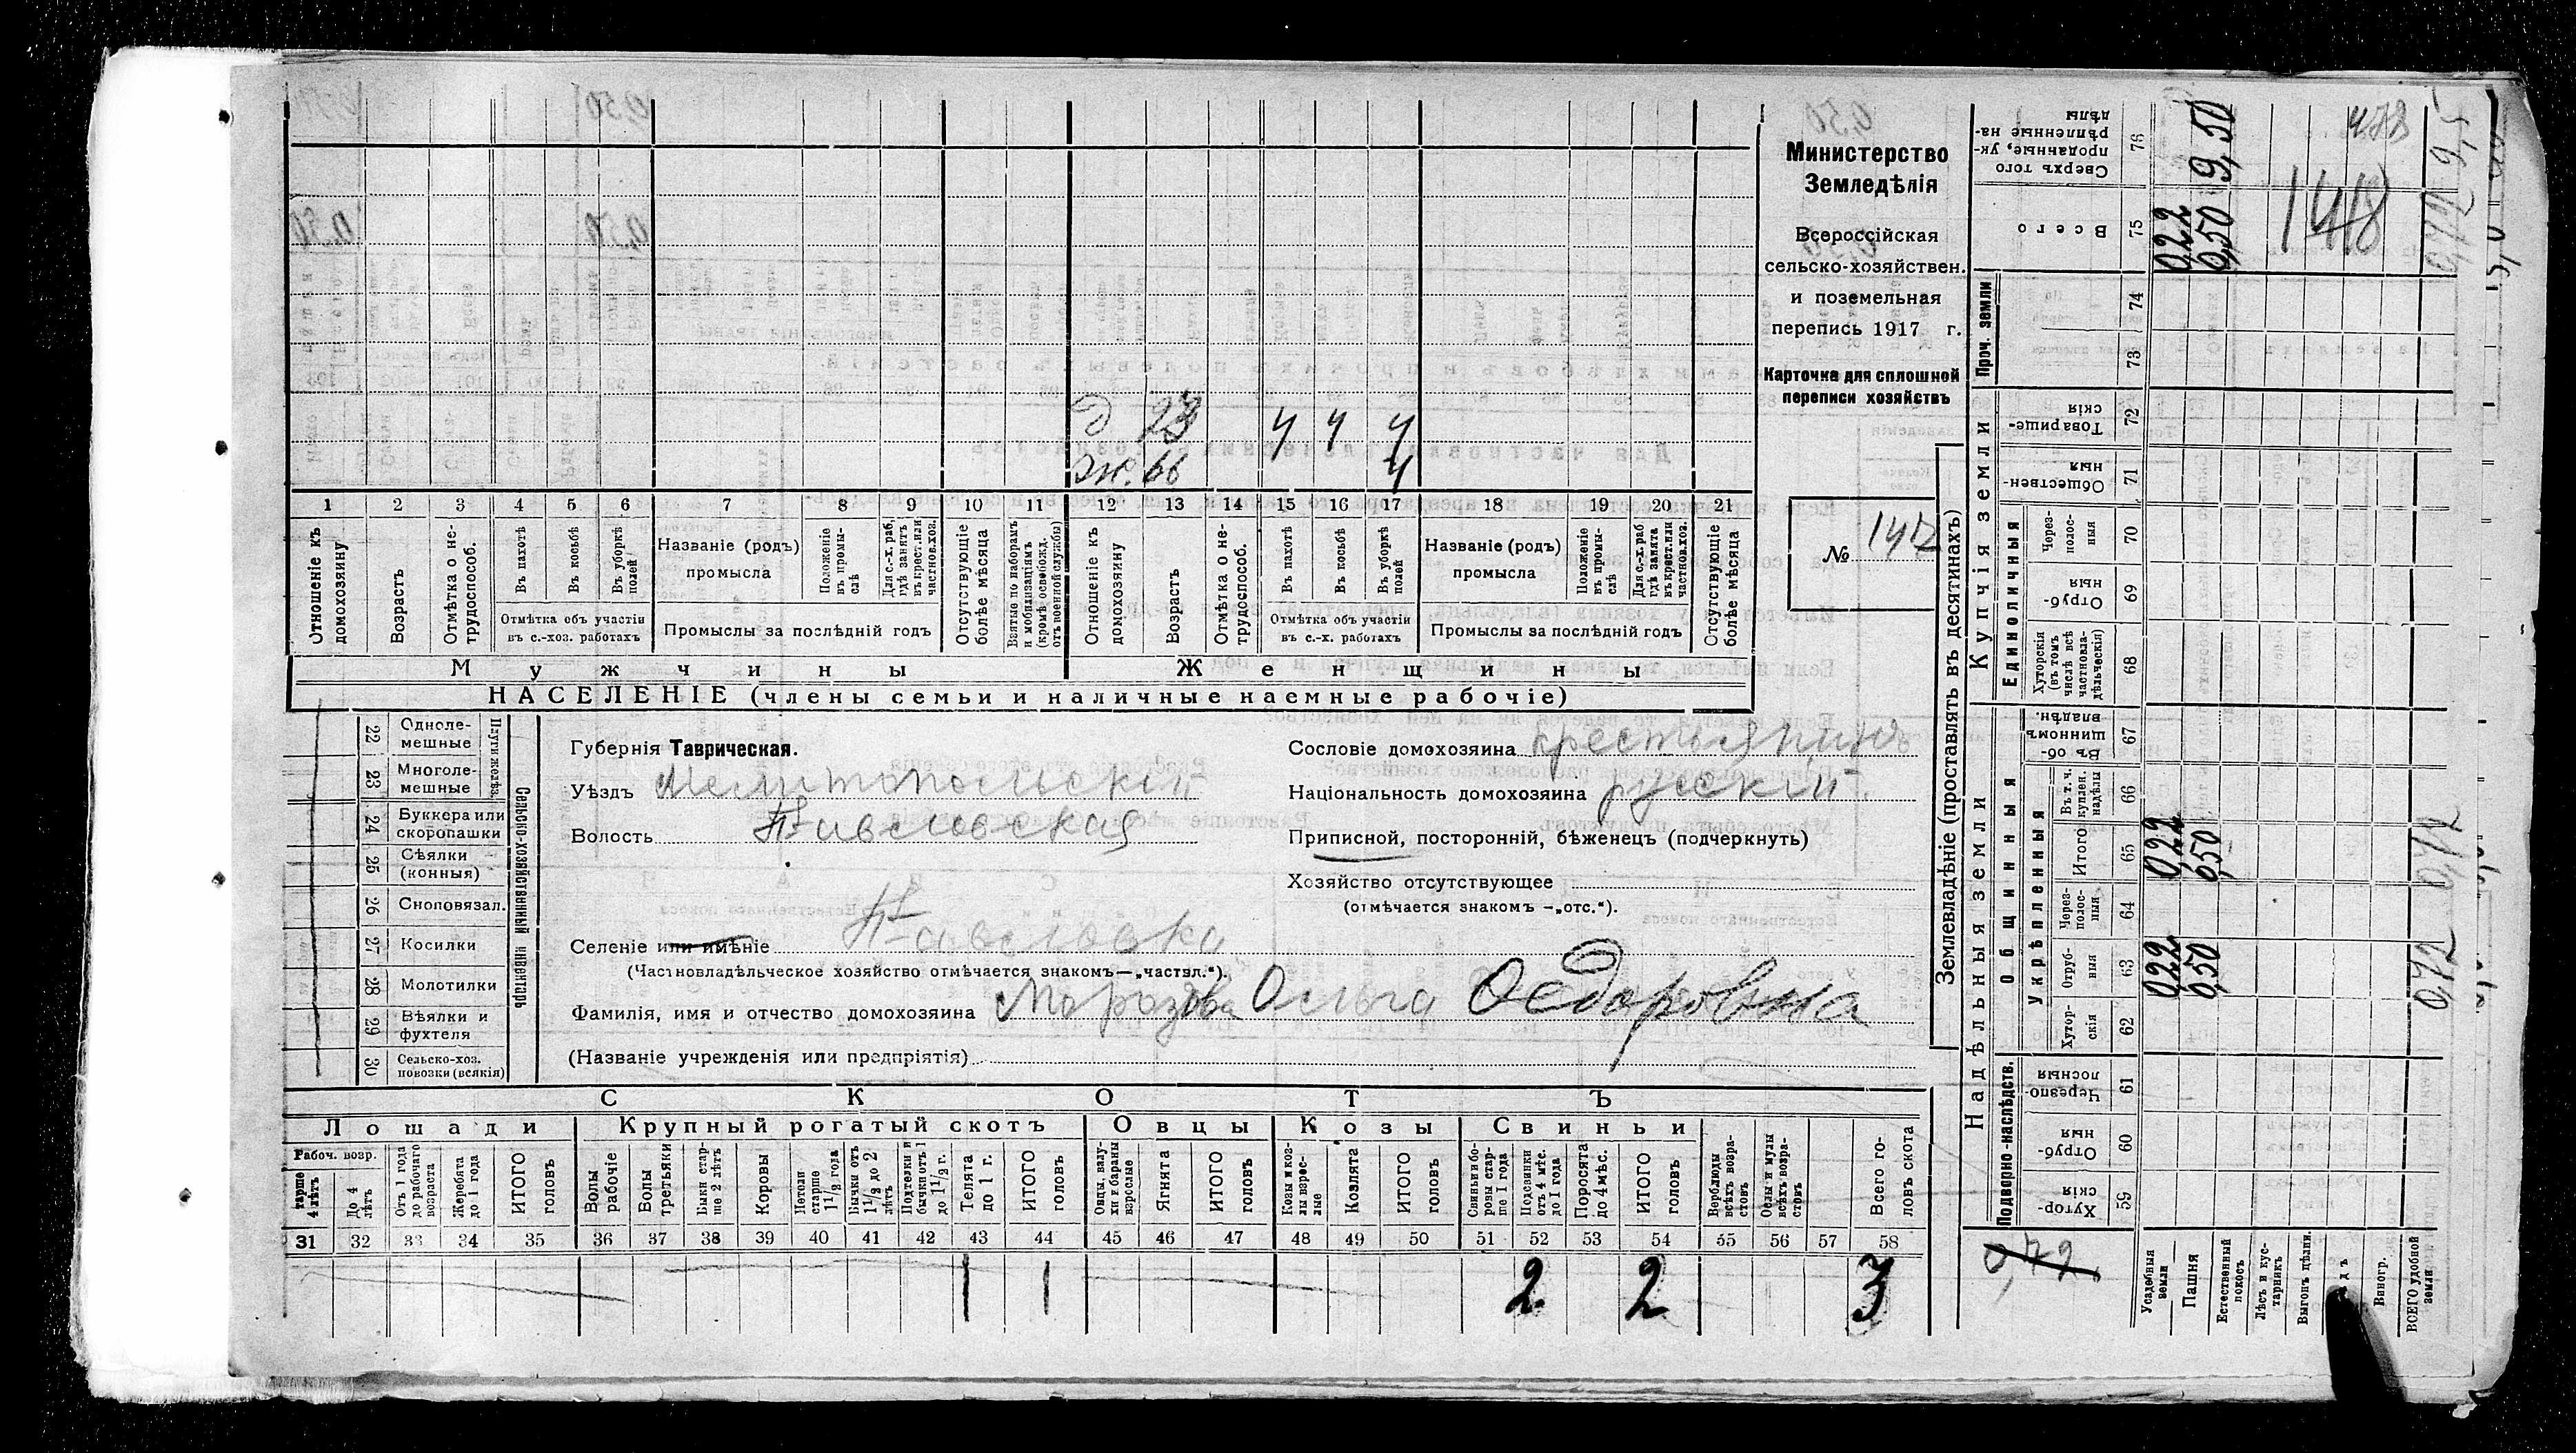 Министерство
Земледѣлія
Всероссійская
сельско-хозяйствен.
и поземельная
перепись 1917 г.
Карточка для сплошной
переписи хозяйствъ
№ 1412
д 23 ч ч ч
Ж. 66 ч
1 2 3 4 5 6 7 8 9 10 11 12 13 14 15 16 17 18 19 20 21
Отношеніе къ домохозяину
Возрастъ
Отмѣтка о не-трудоспособ.
Въ пахотѣ
Въ косьбѣ
Въ уборкѣ полей
Отмѣтка объ участіи въ с.-хоз. работахъ
Названіе (родъ) промысла
Положеніе въ промы-слѣ
Для с.-х. раб, гдѣ занятъ въ крест. или частнов. хоз.
Промыслы за послѣдній годъ
Отсутствующіе болѣе мѣсяца
Взятые по наборамъ и мобилизаціямъ (кромѣ освобожд. отъ военной службы)
Отношеніе къ домохозяину
Возрастъ
Отмѣтка о не-трудоспособ.
Въ пахотѣ
Въ косьбѣ
Въ уборкѣ полей
Отмѣтка объ участіи въ с.-х. работахъ
Названіе (родъ) промысла
Положеніе въ промы-слѣ
Для с.-х. раб гдѣ занята въ крест. или частнов. хоз.
Промыслы за послѣдній годъ
Отсутствующіе болѣе мѣсяца
Мужчины Женщины
НАСЕЛЕНІЕ (члены семьи и наличные наемные рабочіе)
22 Одноле-мешные
23 Многоле-мешные
Плуги желѣз.
24 Буккера или скоропашки
25 Сѣялки (конныя)
26 Сноповязал.
27 Косилки
28 Молотилки
29 Вѣялки и фухтеля
30 Сельско-хоз. повозки (всякія)
Сельско-хозяйственный инвентарь
Губернія Таврическая.
Уѣздъ Мелитопольскій
Волость Павловская
Селеніе или имѣніе Павловка
(Частновладѣльческое хозяйство отмѣчается знакомъ—„частвл.“).
Фамилія, имя и отчество домохозяина Морозова Ольга Федоровна
(Названіе учрежденія или предпріятія)
Сословіе домохозяина крестьянинъ
Національность домохозяина русскій
Приписной, посторонній, бѣженецъ (подчеркнуть)
Хозяйство отсутствующее
(отмѣчается знакомъ —„отс.“).
СКОТЪ
Лошади Крупный рогатый скотъ Овцы Козы Свиньи
Рабоч. возр.
тарше 4 лѣтъ
До 4 лѣтъ
Отъ 1 года до рабочаго возраста
Жеребята до 1 года
ИТОГО головъ
Волы рабочіе
Волы третьяки
Быки стар-ше 2 лѣтъ
Коровы
Нетели старше 1 1/2 года
Бычки отъ 1 1/2 до 2 лѣтъ
Подтелки и бычки отъ 1 до 1 1/2 г.
Телята до 1 г.
ИТОГО головъ
Овцы, валу-хи и бараны взрослые
Ягнята
ИТОГО головъ
Козы и коз-лы взрос-лые
Козлята
ИТОГО головъ
Свиньи и бо-ровы стар-ше 1 года
Подсвинки отъ 4 мѣс. до 1 года
Поросята до 4 мѣс.
ИТОГО головъ
Верблюды всѣхъ возра-стовъ
Ослы и мулы всѣхъ возра-стовъ
Всего го-ловъ скота
31 32 33 34 35 36 37 38 39 40 41 42 43 44 45 46 47 48 49 50 51 52 53 54 55 56 57 58
1 1 2 2 3
Землевладѣніе (проставлять въ десятинахъ)
Надѣльныя земли Купчія земли Проч. земли
Подворно-наслѣдств.
Общинныя
Укрѣпленныя
Единоличныя
Хутор-скія 59
Отруб-ныя 60
Черезпо-лосныя 61
Хутор-скія 62
Отруб-ныя 63
Через-полос-ныя 64
Итого 65
Въ т. ч. куплен. надѣлы 66
Въ об-щинномъ владѣн. 67
Хуторскія (въ томъ числѣ всѣ частновла-дѣльческія) 68
Отруб-ныя 69
Через-полос-ныя 70
Обществен-ныя 71
Товарище-скія 72
73 74
Всего 75
Сверхъ того проданные, ук-рѣпленные на-дѣлы 76
Усадебныя земли 0,22 0,22 0,22
Пашня 0,50 0,50 0,50 9,50
Естественный покосъ
Лѣсъ и кус-тарникъ
Выгонъ цѣлин.
Виногр.
ВСЕГО удобной земли 0,72 0,72 0,72 9,5
0,72
1418
478